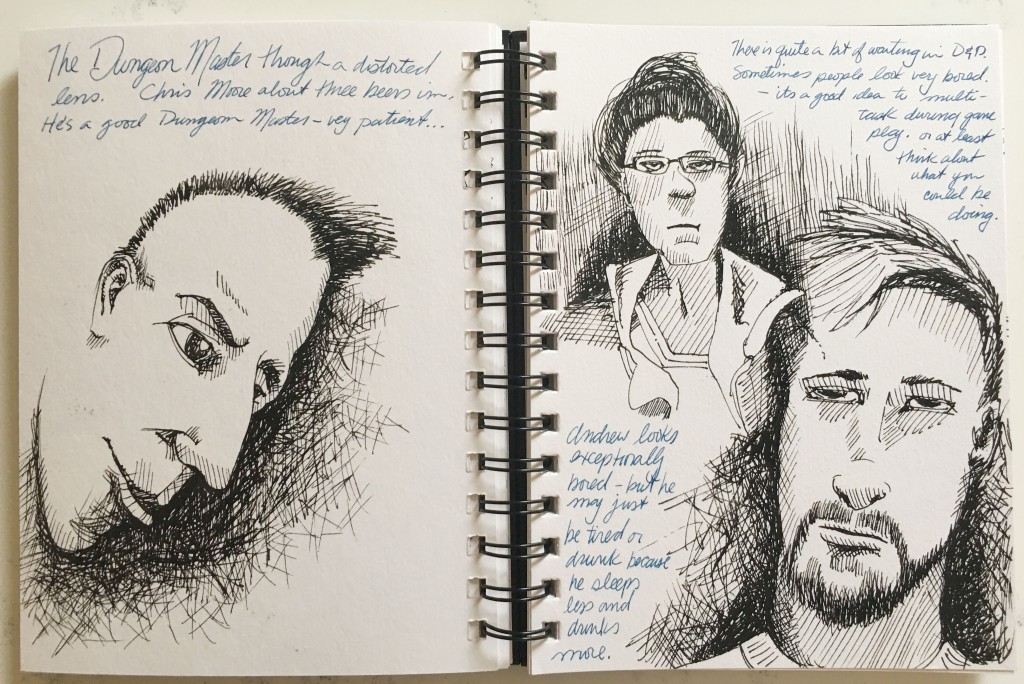 The Dungeon Master though a distorted
lens. Chris Moore about three beers in.
He's a good Dungeon Master - vey patient...
There is quite a bit of waiting in D&D.
Sometimes people look very bored.
- its a good idea to multi-
task during game
play. or at least
think about
what you
could be
doing.
Andrew looks
exceptionally
bored - but he
may just
be tired or
drunk because
he sleeps
less and
drinks
more.